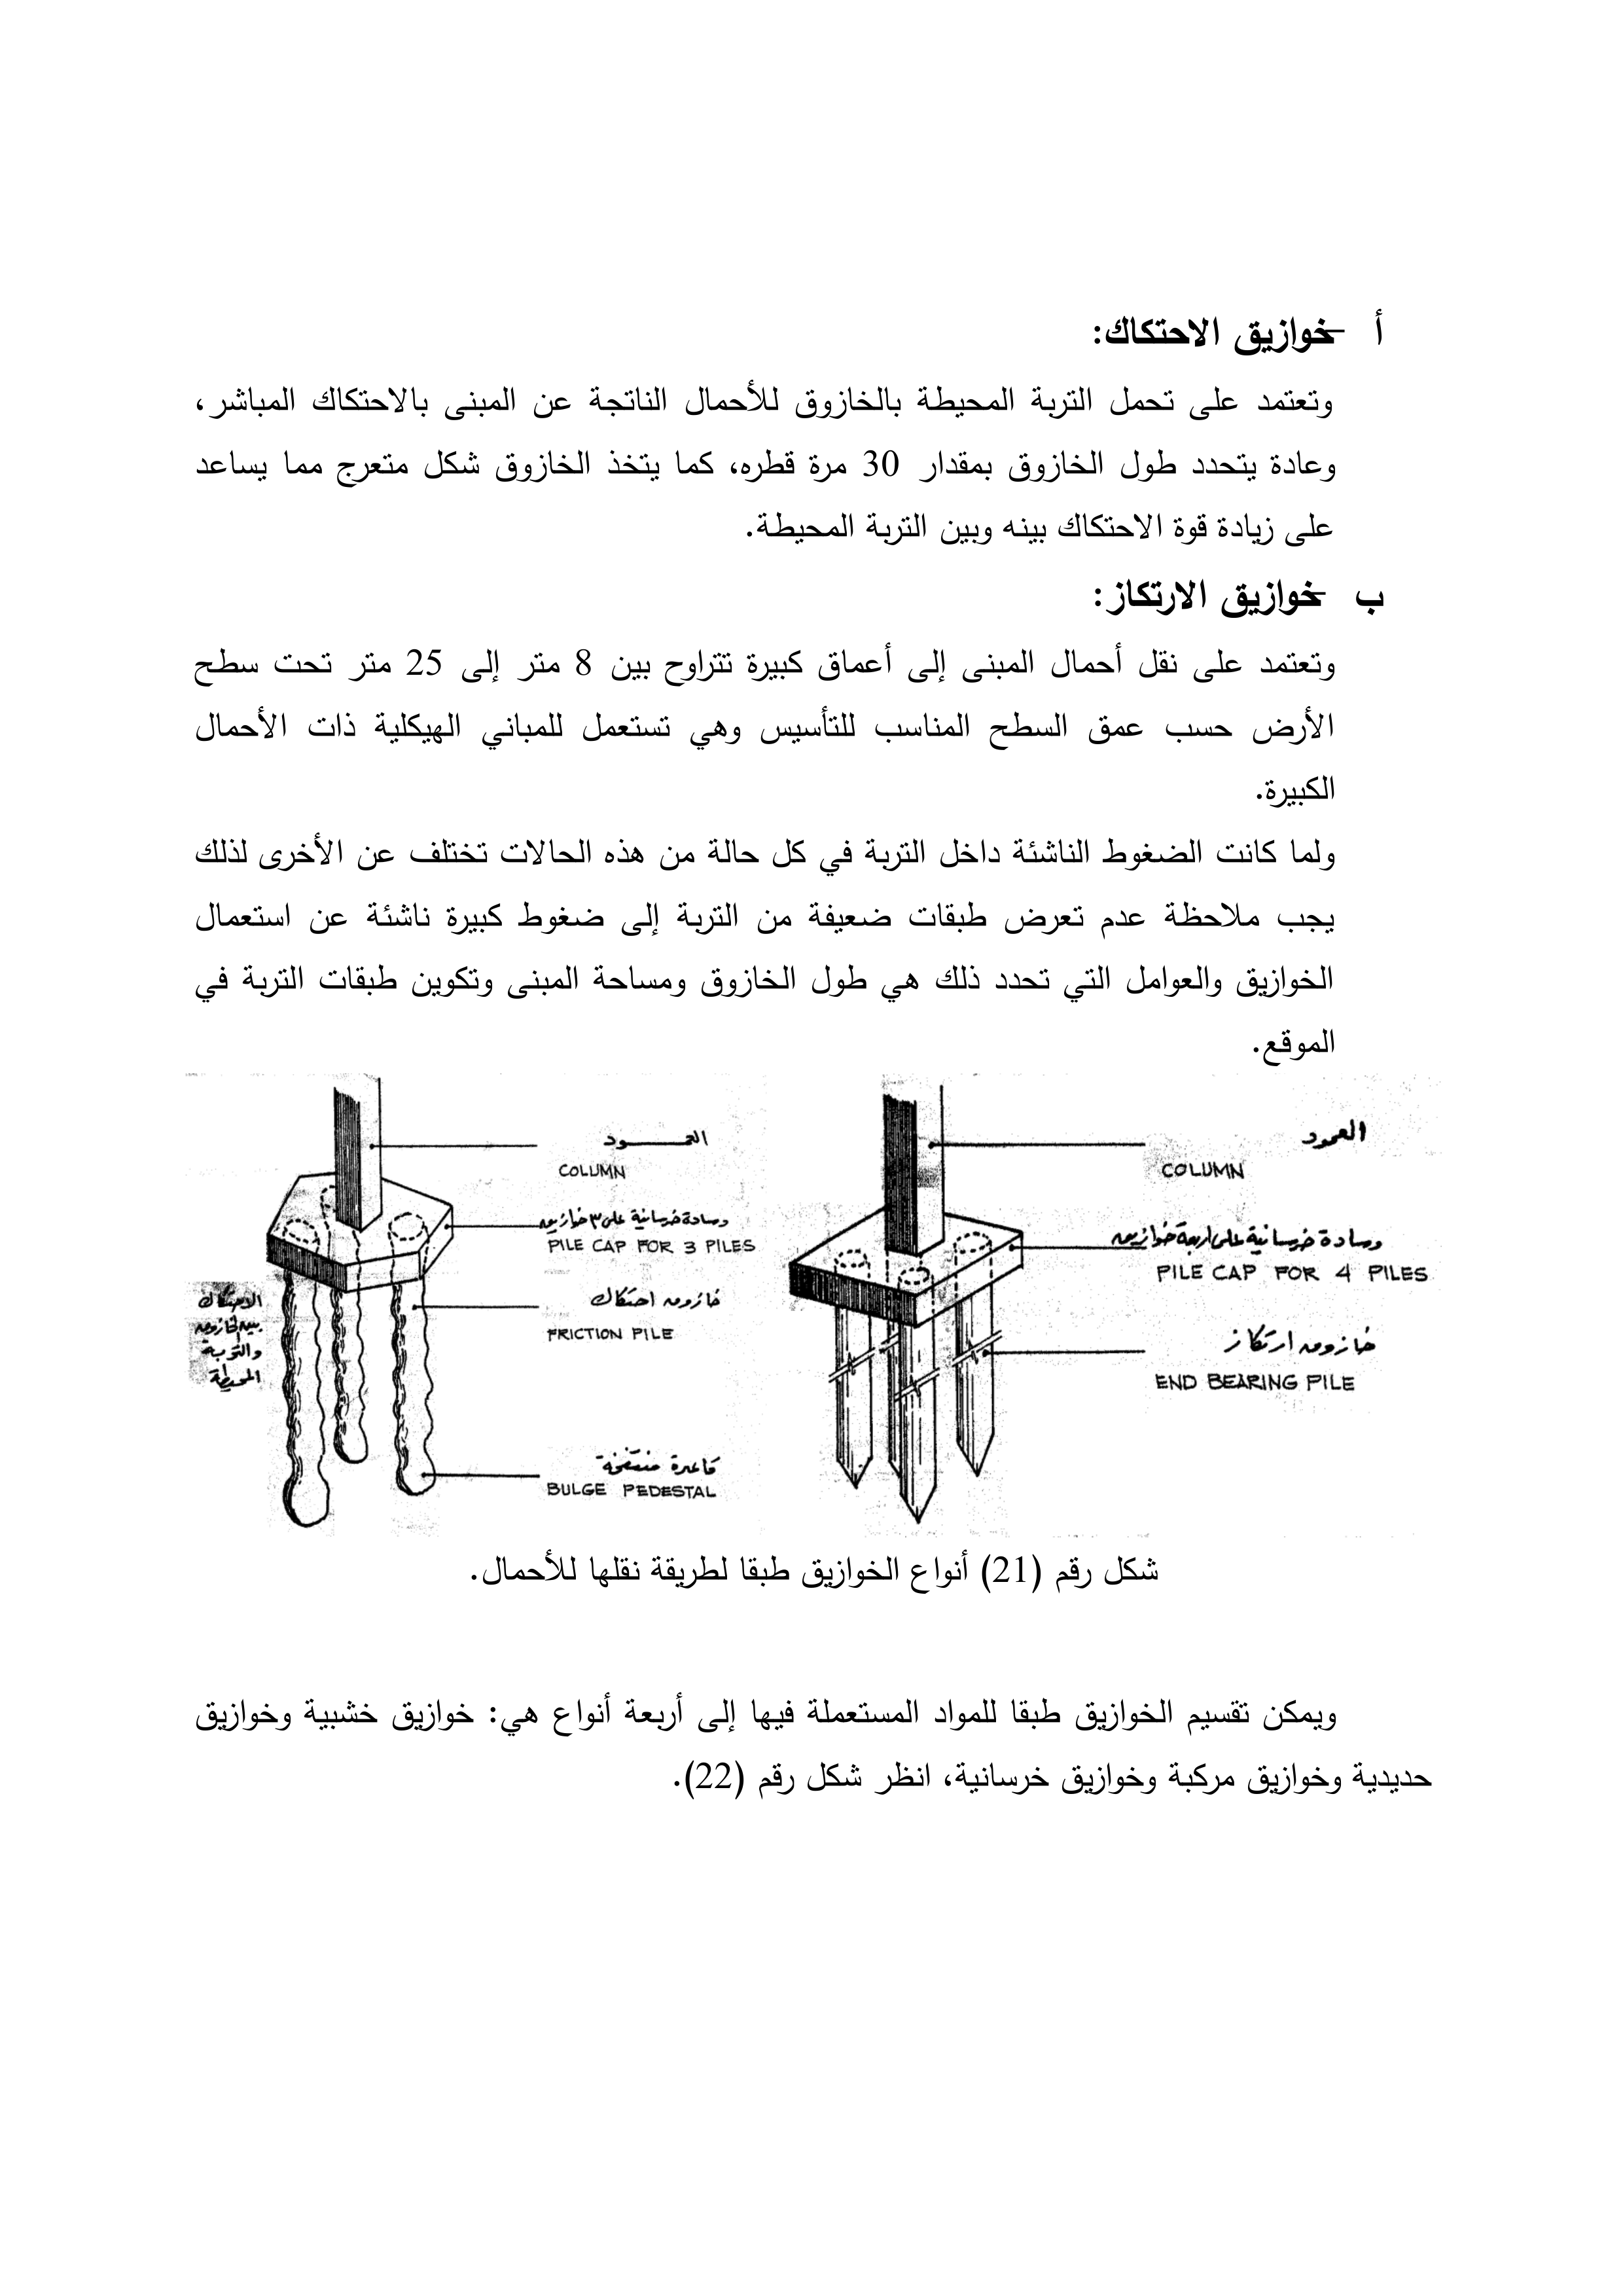 أ -خوازيق الاحتكاك:
وتعتمد على تحمل التربة المحيطة بالخازوق للأحمال الناتجة عن المبنى بالاحتكاك المباشر،
وعادة يتحدد طول الخازوق بمقدار 30 مرة قطره، كما يتخذ الخازوق شكل متعرج مما يساعد
على زيادة قوة الاحتكاك بينه وبين التربة المحيطة.
ب -خوازيق الارتكاز:
وتعتمد على نقل أحمال المبنى إلى أعماق كبيرة تتراوح بين 8 متر إلى 25 متر تحت سطح
الأرض حسب عمق السطح المناسب للتأسيس وهي تستعمل للمباني الهيكلية ذات الأحمال
الكبيرة.
ولما كانت الضغوط الناشئة داخل التربة في كل حالة من هذه الحالات تختلف عن الأخرى لذلك
يجب ملاحظة عدم تعرض طبقات ضعيفة من التربة إلى ضغوط كبيرة ناشئة عن استعمال
الخوازيق والعوامل التي تحدد ذلك هي طول الخازوق ومساحة المبنى وتكوين طبقات التربة في
الموقع.
العمود
COLUMN
وسادة خرسانية على اربعة خوازيق
PILE CAP FOR 4 PILES
خازوق ارتكاز
END BEARING PILE
العمود
COLUMN
وسادة خرسانية على ٣ خوازيق
PILE CAP FOR 3 PILES
خازوق احتكاك
FRICTION PILE
قاعدة منتفخة
BULGE PEDESTAL
الاحتكاك
بين الخازوق
والتربة
المحيطة
شكل رقم (21) أنواع الخوازيق طبقا لطريقة نقلها للأحمال.
ويمكن تقسيم الخوازيق طبقا للمواد المستعملة فيها إلى أربعة أنواع هي: خوازيق خشبية وخوازيق
حديدية وخوازيق مركبة وخوازيق خرسانية، انظر شكل رقم (22).